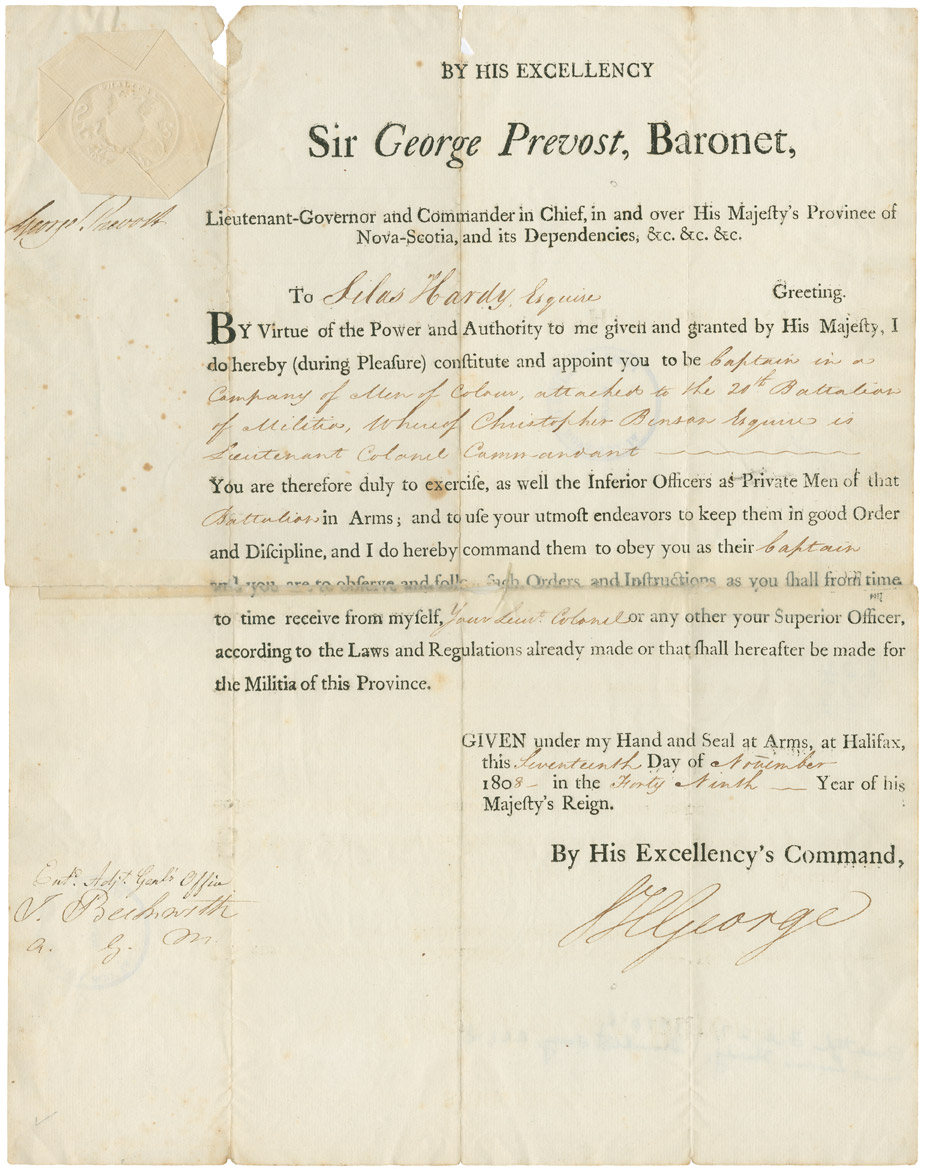 BY HIS EXCELLENCY
Sir George Prevost, Baronet,
George Prevost
Lieutenant-Governor and Commander in Chief, in and over His Majeſty's Province of
Nova-Scotia, and its Dependencies, &c. &c. &c.
To Silas Hardy, Esquire Greeting.
BY Virtue of the Power and Authority to me given and granted by His Majeſty, I
do hereby (during Pleaſure) conſtitute and appoint you to be Captain in a
Company of Men of Colour, attached to the 20th Battalion
of Militia, Whereof Christopher Benson Esquire is
Lieutenant Colonel Commandant
You are therefore duly to exerciſe, as well the Inferior Officers as Private Men of that
Battalion in Arms; and to uſe your utmoſt endeavors to keep them in good Order
and Diſcipline, and I do hereby command them to obey you as their Captain
and you are to obſerve and follow ſuch Orders and Inſtructions as you ſhall from time
to time receive from myſelf, Your Lieut. Colonel or any other your Superior Officer,
according to the Laws and Regulations already made or that ſhall hereafter be made for
the Militia of this Province.
GIVEN under my Hand and Seal at Arms, at Halifax,
this Seventeenth Day of November
1808 in the Forty Ninth Year of his
Majeſty's Reign.
By His Excellency's Command,
SHGeorge
Entd. Adjt. Genl's Office
T. Beckwith
A. G. M.